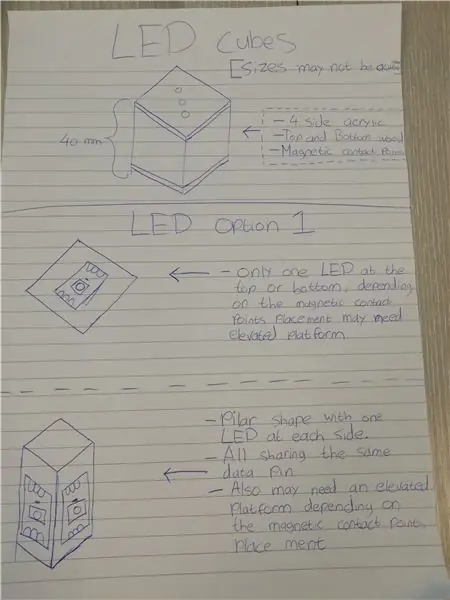 LED Cubes
[Sizes may not be
40 mm
- 4 side acrylic
- Top and Bottom wood
- Magnetic contact Points
LED Option 1
- Only one LED at the
top or bottom, depending
on the magnetic contact
Points Placement may need
elevated platform.
- Pilar shape with one
LED at each side.
- All sharing the same
data pin
- Also may need an elevated
Platform depending on
the magnetic contact Points
Place ment